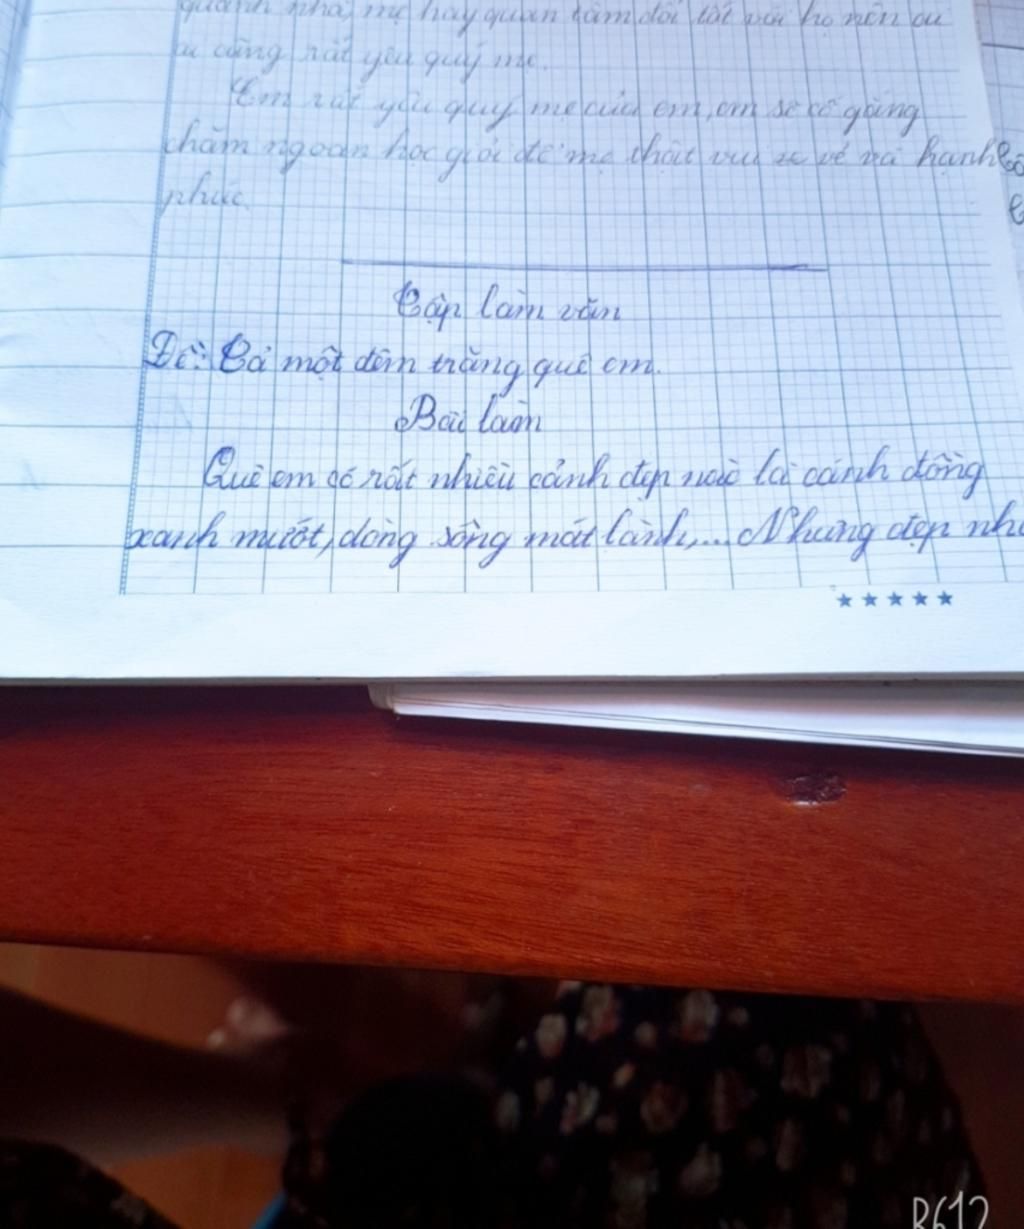 quanh nhà, mẹ hay quan tâm đối tốt với họ nên ai
ai cũng rất yêu quý mẹ.
Em rất yêu quý mẹ của em, em sẽ cố gắng
chăm ngoan học giỏi để mẹ thật vui vẻ và hạnh
phúc.
Tập làm văn
Đề: Tả một đêm trăng quê em.
Bài làm
Quê em có rất nhiều cảnh đẹp nào là cánh đồng
xanh mướt, dòng sông mát lành,... Nhưng đẹp nh
R612